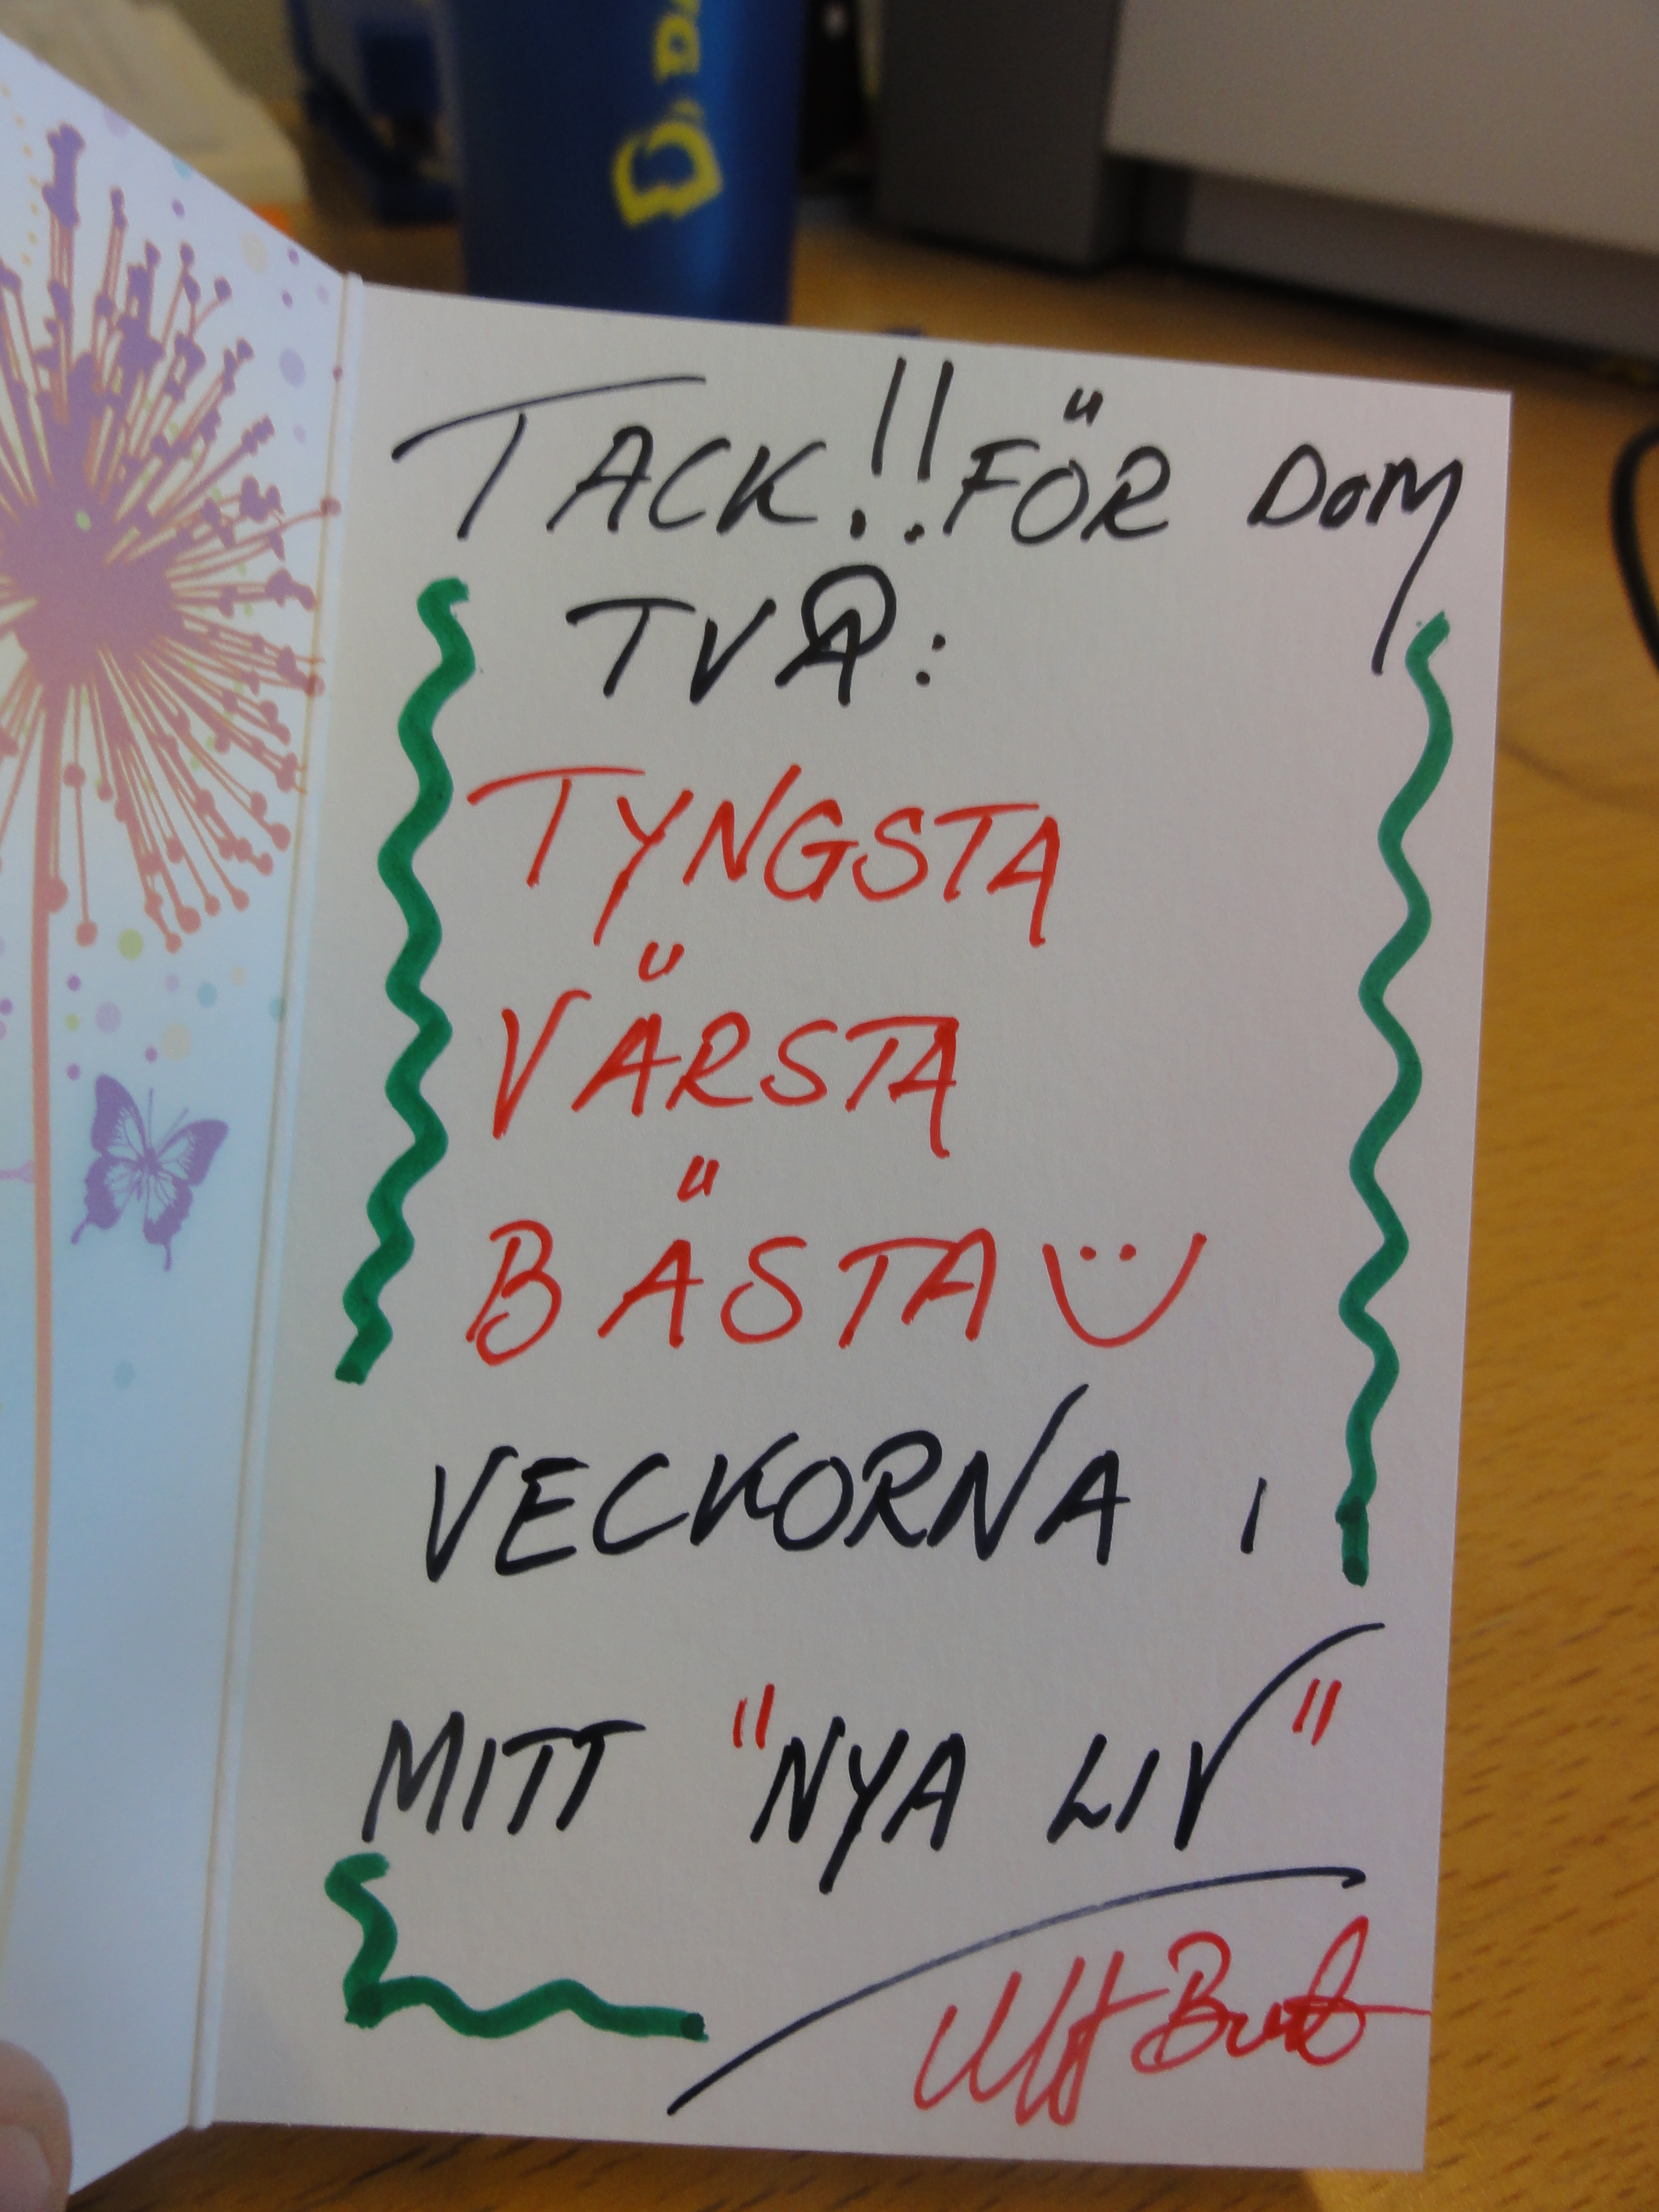 TACK!! FÖR DOM
TVÅ:
TYNGSTA
VÄRSTA
BÄSTA
VECKORNA I
MITT "NYA LIV"